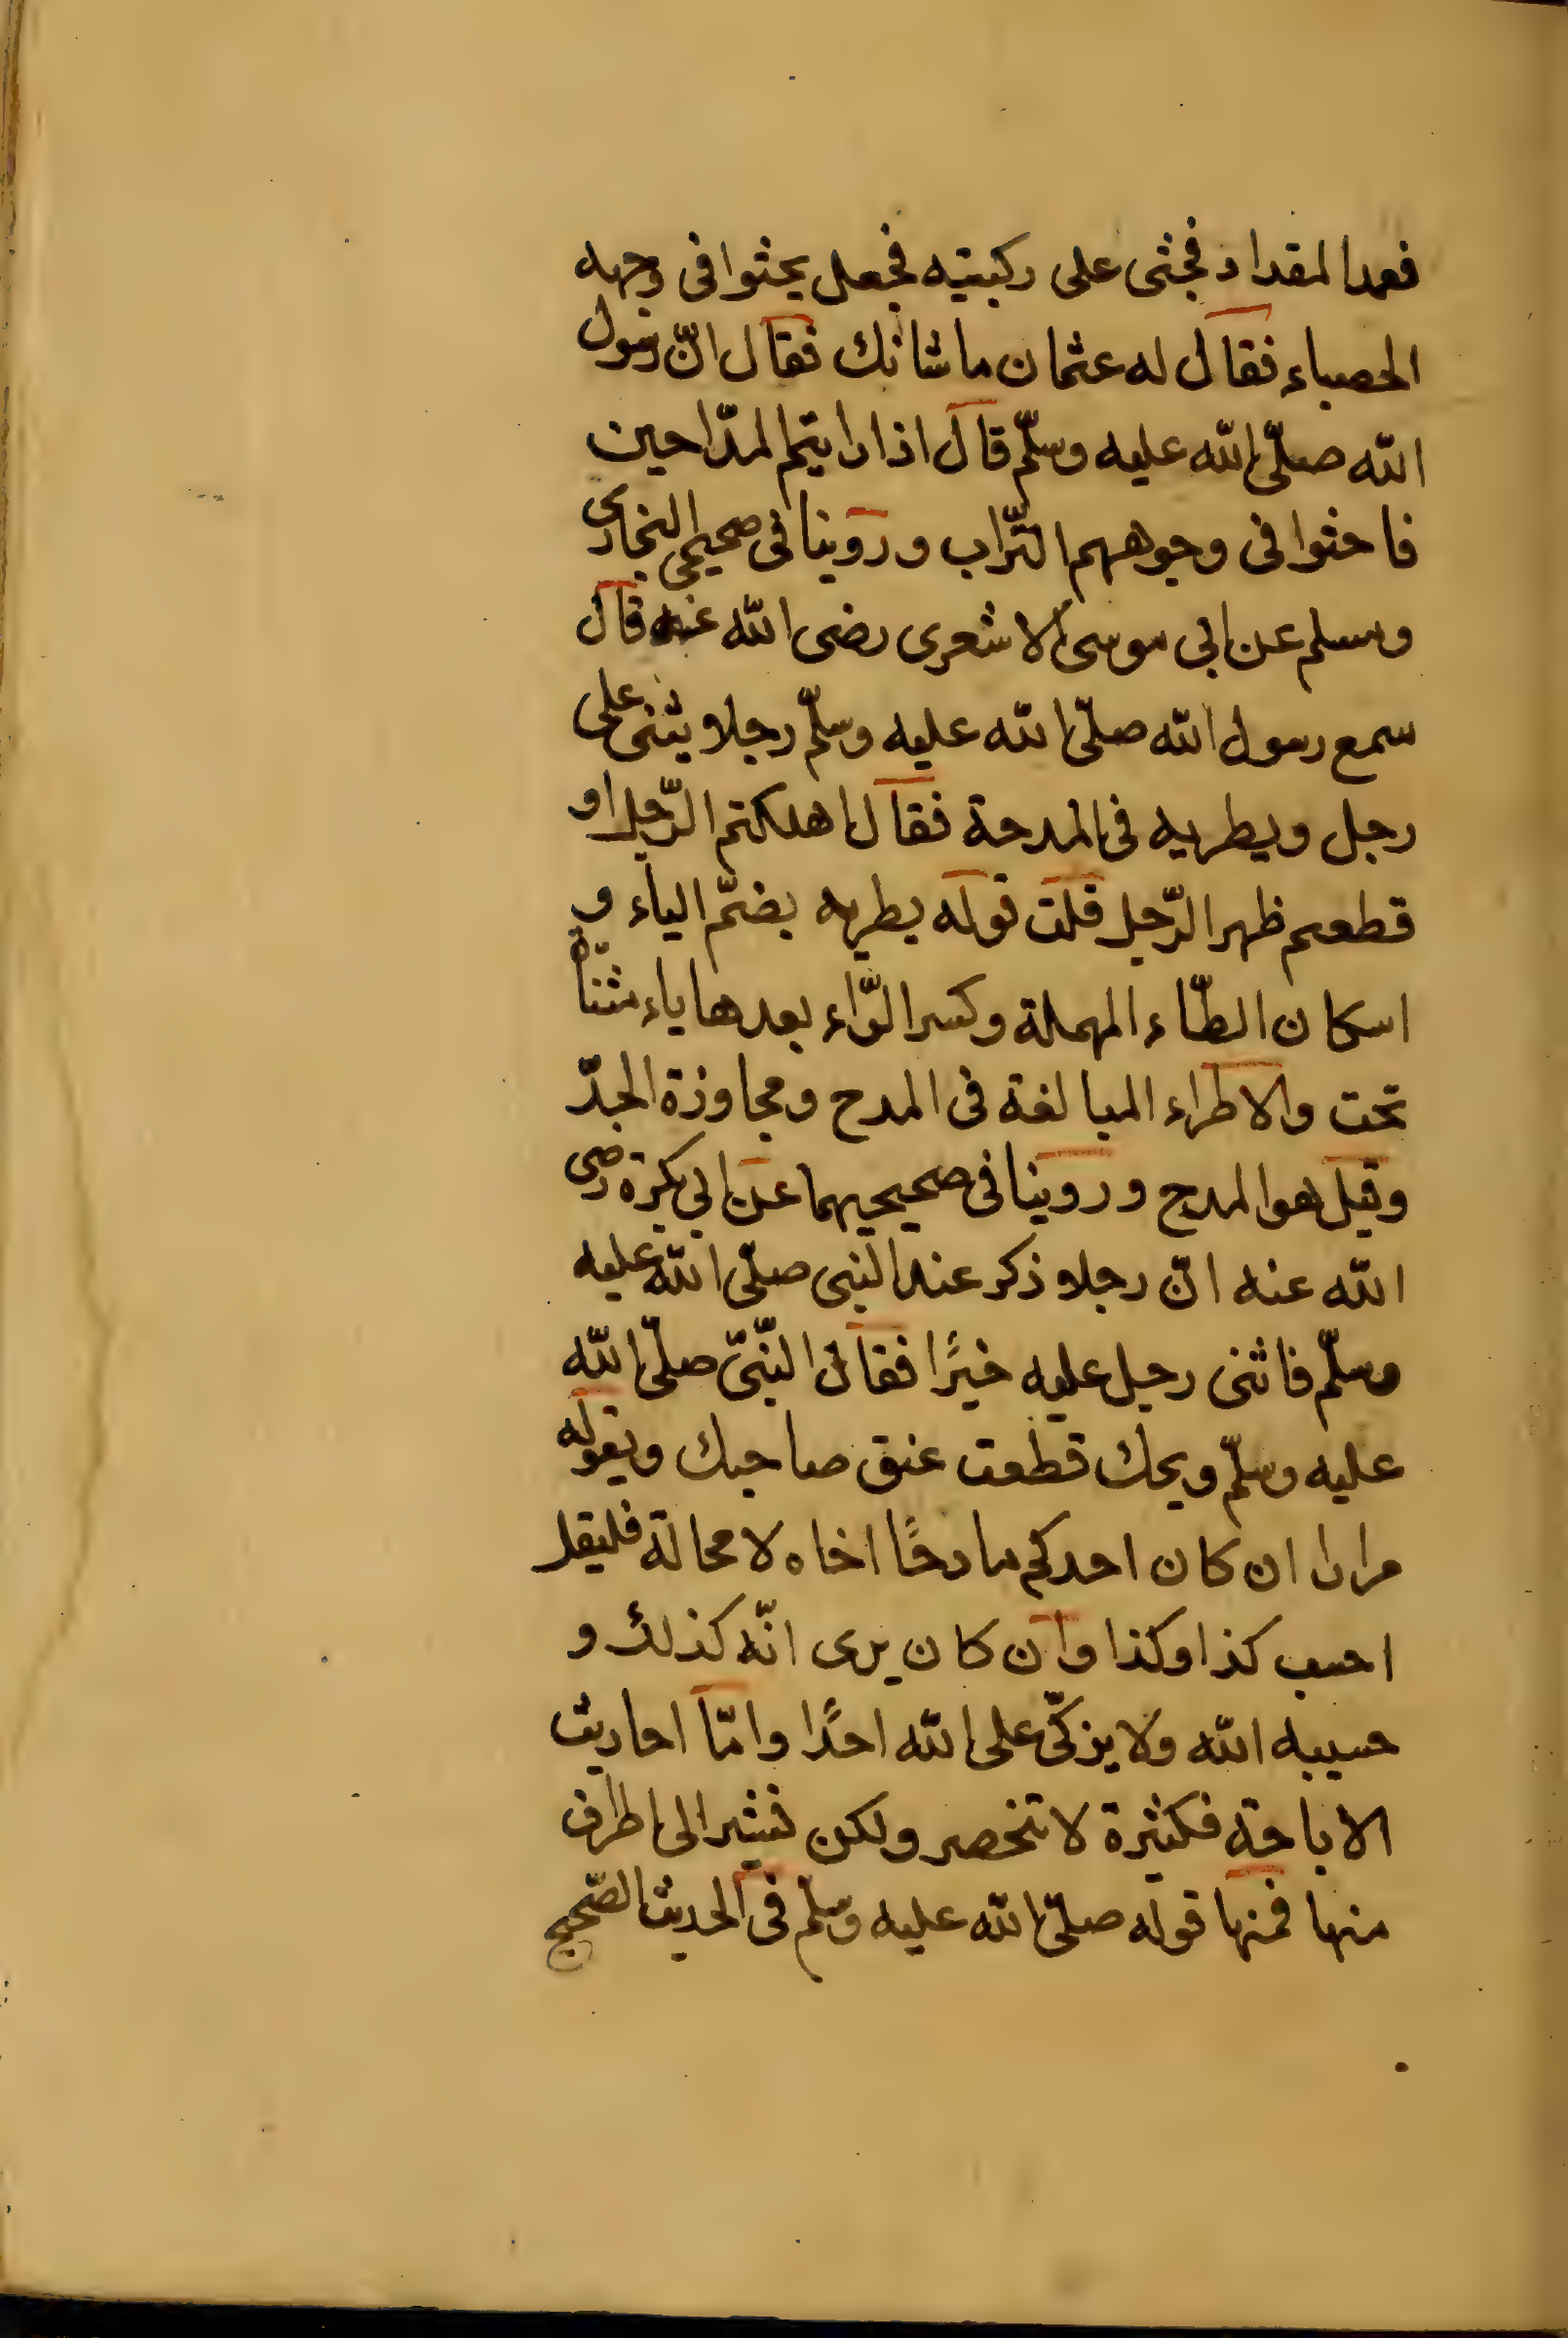 فعمد المقداد فجثى على ركبتيه فجعل يحثوا فى وجهه
الحصباء فقال له عثمان ما شانك فقال انّ رسول
الله صلّى الله عليه وسلّم قال اذا رايتم المدّاحين
فاحثوا فى وجوههم التّراب وروينا فى صحيحى البخارى
ومسلم عن ابى موسى الاشعرى رضى الله عنه قال
سمع رسول الله صلّى الله عليه وسلّم رجلا يثنى على
رجل ويطريه فى المدحة فقال اهلكتم الرّجل او
قطعتم ظهر الرّجل قلت قوله يطريه بضمّ الياء و
اسكان الطّاء المهملة وكسر الرّاء بعدها ياء مثنّاة
تحت والاطراء المبالغة فى المدح ومجاوزة الحدّ
وقيل هو المدح وروينا فى صحيحيهما عن ابى بكرة رضى
الله عنه انّ رجلا ذكر عند النبى صلّى الله عليه
وسلّم فاثنى رجل عليه خيرًا فقال النّبىّ صلّى الله
عليه وسلّم ويحك قطعت عنق صاحبك ويقوله
مرارا ان كان احدكم مادحًا اخاه لا محالة فليقل
احسب كذا وكذا وان كان يرى انّه كذلك و
حسيبه الله ولا يزكّى على الله احدًا وامّا احاديث
الاباحة فكثيرة لا تنحصر ولكن نشير الى اطراف
منها فمنها قوله صلّى الله عليه وسلّم فى الحديث الصّحيح